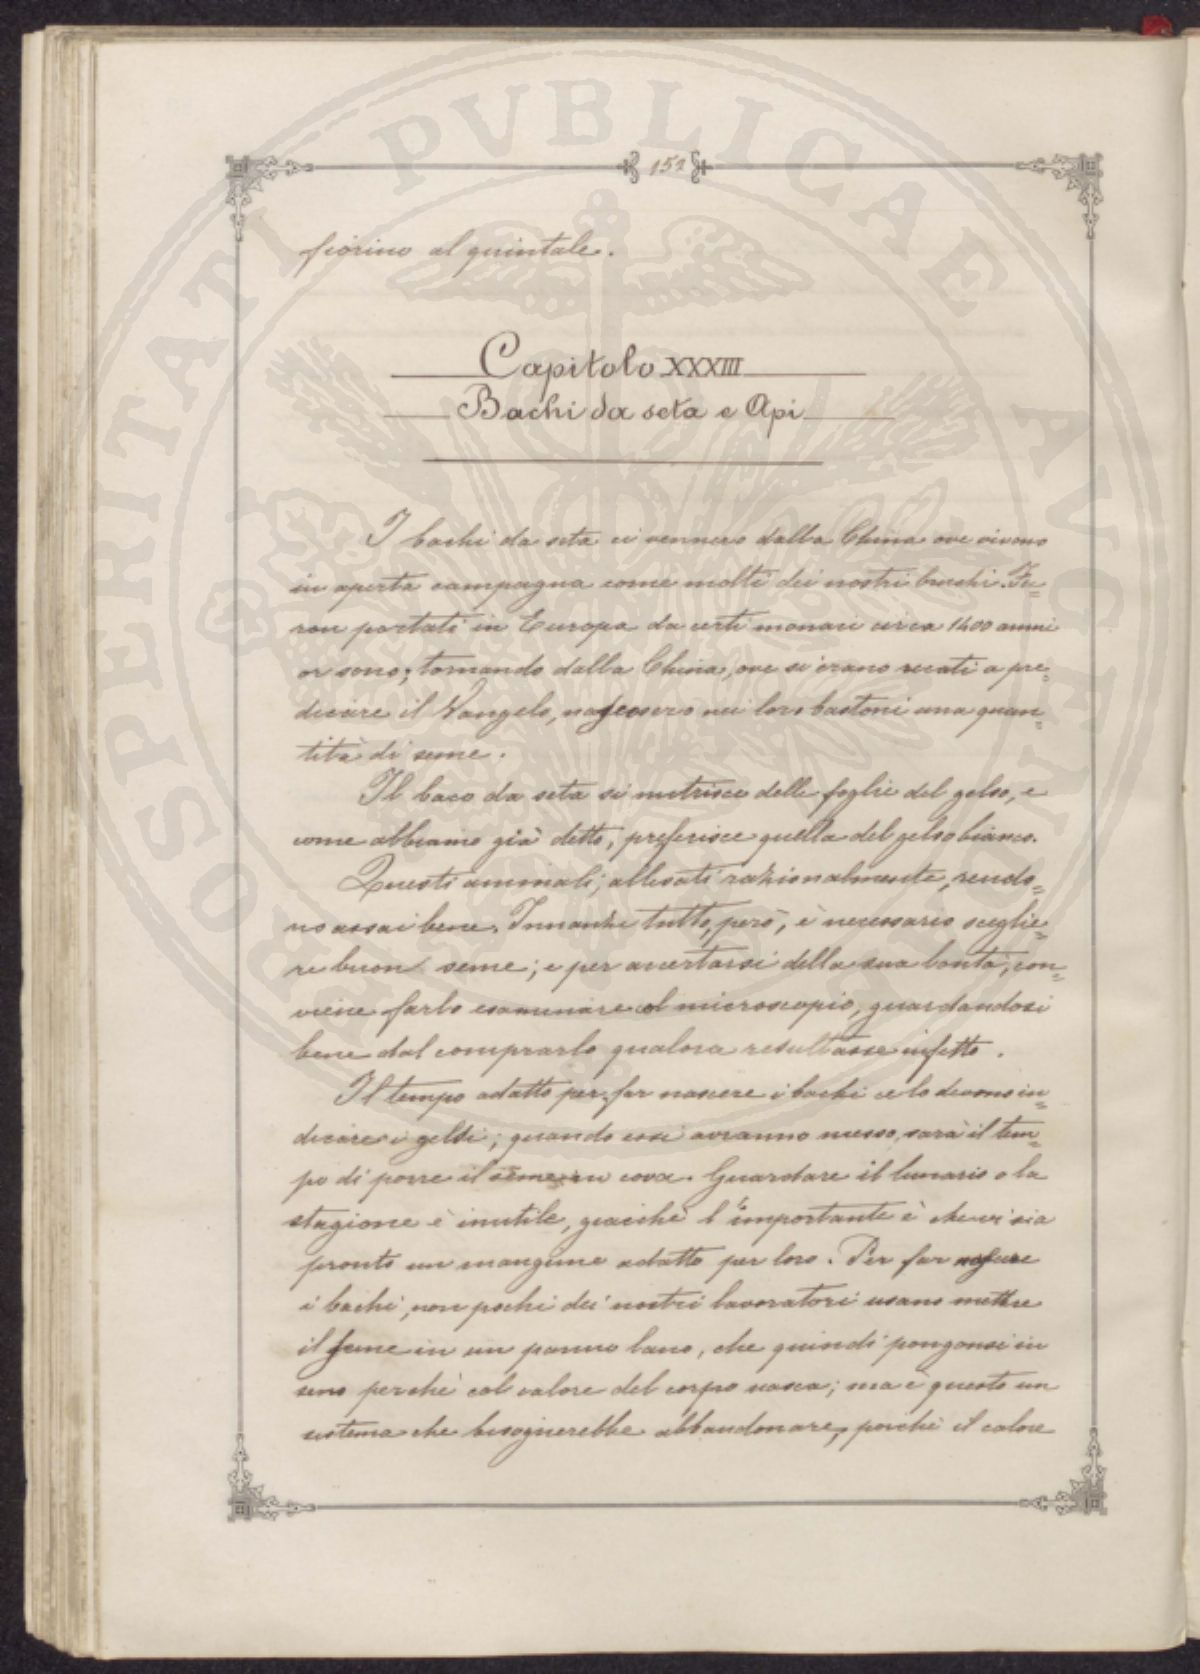 152
fiorino al quintale.
Capitolo XXXIII
Bachi da seta e Api
I bachi da seta ci vennero dalla China ove vivono
in aperta campagna come molti dei nostri bruchi. Fu=
ron portati in Europa da certi monaci circa 1400 anni
or sono; tornando dalla China, ove si erano recati a pre=
dicare il Vangelo, nascosero nei loro bastoni una quan=
tità di seme.
Il baco da seta si nutrisce delle foglie del gelso, e
come abbiamo già detto, preferisce quella del gelso bianco.
Questi animali, allevati razionalmente, rendo=
no assai bene. Innanzi tutto, però, è necessario sceglie=
re buon seme; e per accertarsi della sua bontà, con=
viene farlo esaminare al microscopio, guardandosi
bene dal comprarlo qualora resultasse infetto.
Il tempo adatto per far nascere i bachi ce lo devono in=
dicare i gelsi; quando essi avranno messo, sarà il tem=
po di porre il seme in cova. Guardare il lunario o la
stagione è inutile, giacchè l'importante è che vi sia
pronto un mangime adatto per loro. Per far nascere
i bachi, non pochi dei nostri lavoratori usano mettere
il seme in un panno lano, che quindi pongonsi in
seno perchè col calore del corpo nasca; ma è questo un
sistema che bisognerebbe abbandonare, poichè il calore
PROSPERITATI PVBLICAE AVGENDAE